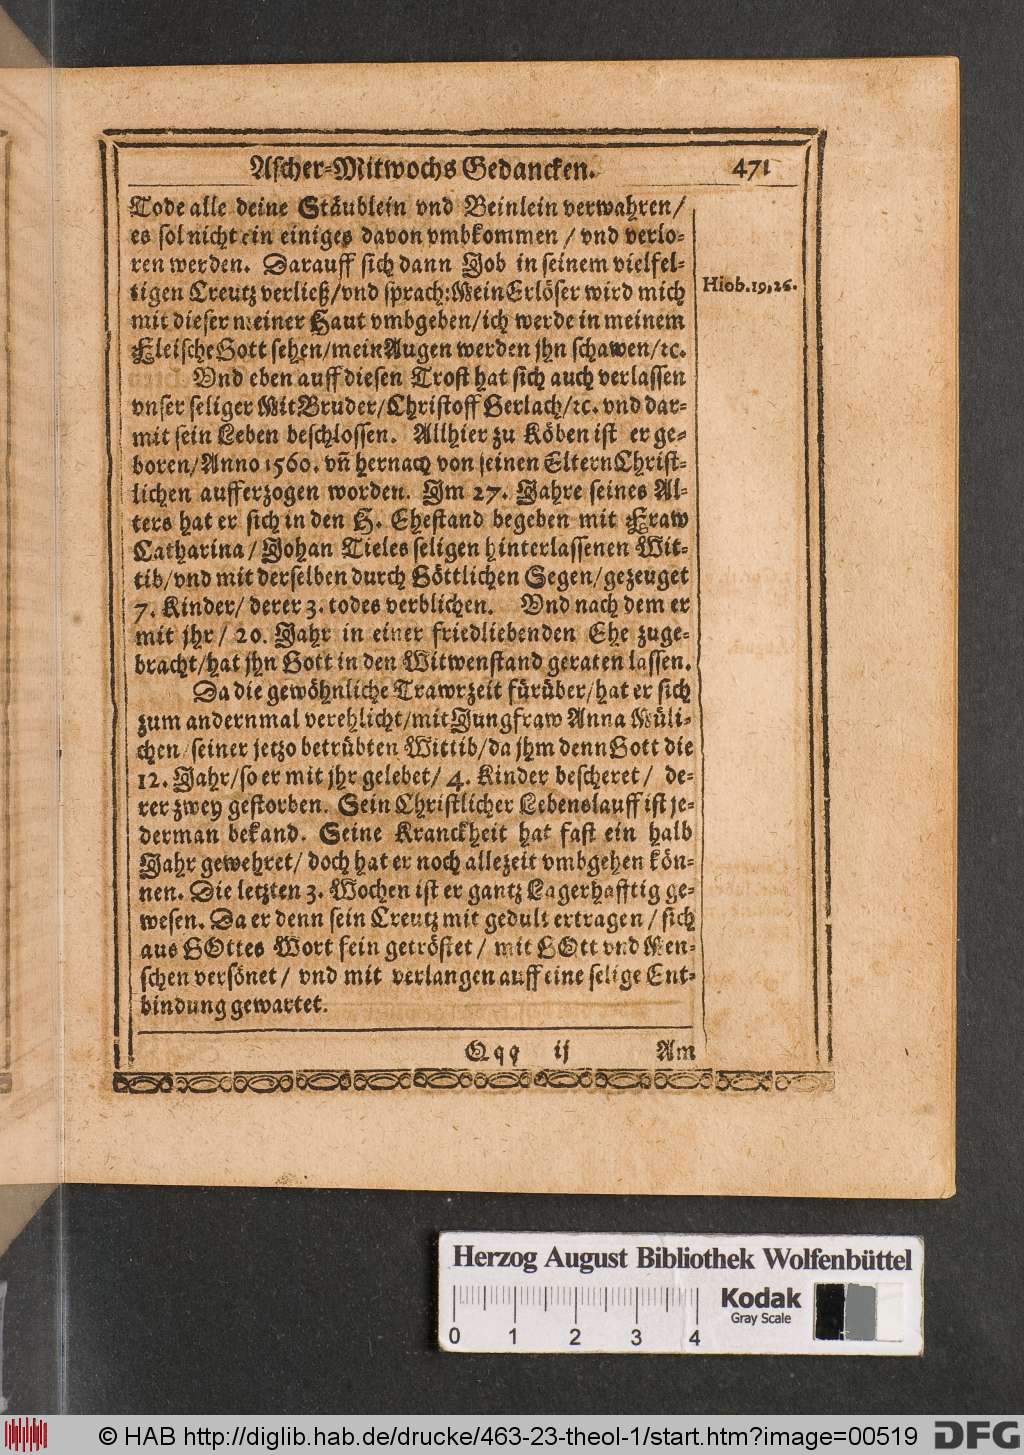 Ascher-Mitwochs Gedancken. 471
Tode alle deine Stäublein vnd Beinlein verwahren/
es sol nicht ein einiges davon vmbkommen / vnd verlo-
ren werden. Darauff sich dann Job in seinem vielfel-
tigen Creutz verließ/vnd sprach: Mein Erlöser wird mich
Hiob. 19, 26.
mit dieser meiner Haut vmbgeben/ich werde in meinem
Fleische Gott sehen/mein Augen werden jhn schawen/ꝛc.
Vnd eben auff diesen Trost hat sich auch verlassen
vnser seliger MitBruder/Christoff Gerlach/ꝛc. vnd dar-
mit sein Leben beschlossen. Allhier zu Köben ist er ge-
boren/Anno 1560. vñ hernach von seinen Eltern Christ-
lichen aufferzogen worden. Im 27. Jahre seines Al-
ters hat er sich in den H. Ehestand begeben mit Fraw
Catharina/ Johan Tieles seligen hinterlassenen Wit-
tib/vnd mit derselben durch Göttlichen Segen/gezeuget
7. Kinder/ derer 3. todes verblichen. Vnd nach dem er
mit jhr/ 20. Jahr in einer friedliebenden Ehe zuge-
bracht/hat jhn Gott in den Witwenstand geraten lassen.
Da die gewöhnliche Trawrzeit fürüber/hat er sich
zum andernmal verehlicht/mit Jungfraw Anna Müli-
chen/seiner jetzo betrübten Wittib/da jhm denn Gott die
12. Jahr/so er mit jhr gelebet/ 4. Kinder bescheret/ de-
rer zwey gestorben. Sein Christlicher Lebenslauff ist je-
derman bekand. Seine Kranckheit hat fast ein halb
Jahr gewehret/ doch hat er noch allezeit vmbgehen kön-
nen. Die letzten 3. Wochen ist er gantz Lagerhafftig ge-
wesen. Da er denn sein Creutz mit gedult ertragen/ sich
aus GOttes Wort fein getröstet/ mit GOtt vnd Men-
schen versönet/ vnd mit verlangen auff eine selige Ent-
bindung gewartet.
Qqq ij Am
Herzog August Bibliothek Wolfenbüttel
0 1 2 3 4
Kodak
Gray Scale
© HAB http://diglib.hab.de/drucke/463-23-theol-1/start.htm?image=00519
DFG